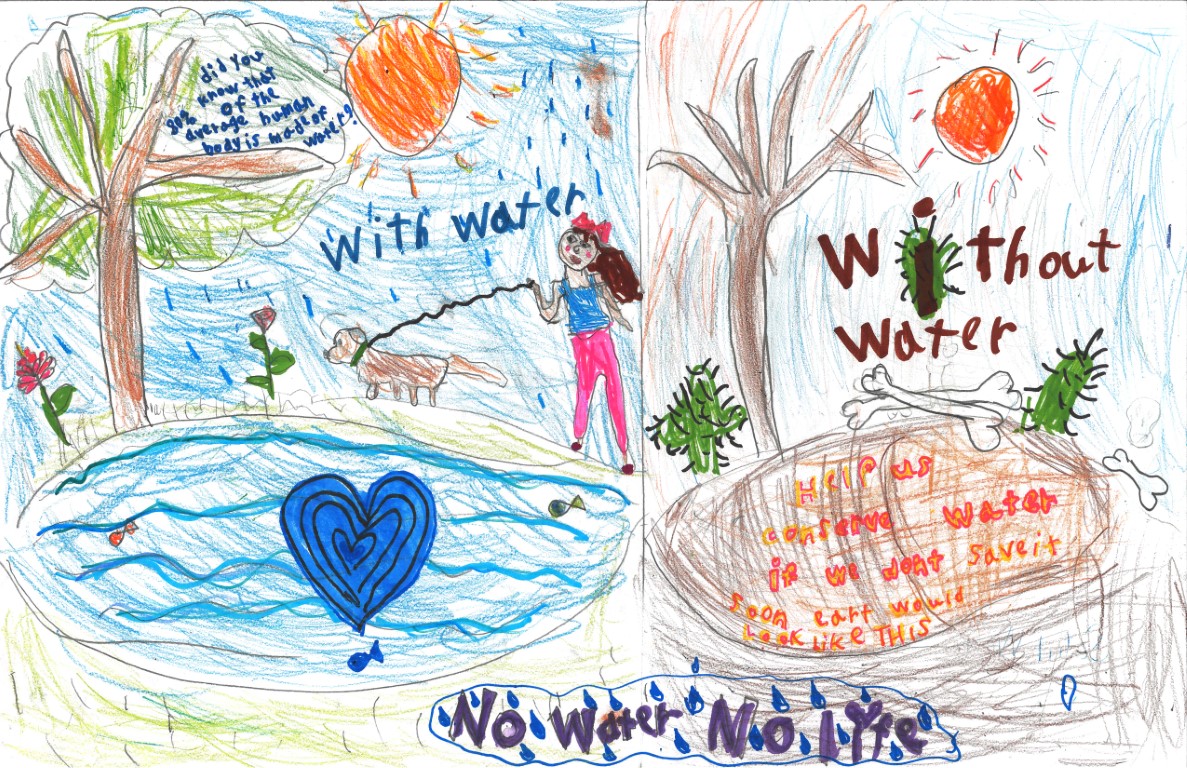 did you
know that
90% of the
average human
body is made of
water?!
With water
Without
water
Help us
conserve water
if we dont save it
soon eart would
Look Like THIS
No Water No Life